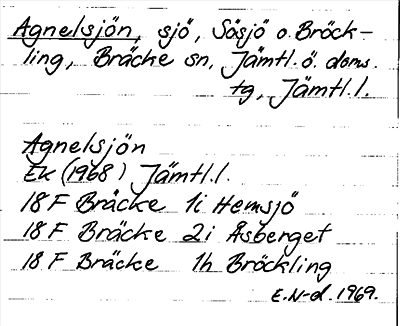 Agnelsjön, sjö, Sösjö o. Bröck-
ling, Bräcke sn, Jämtl. ö. doms.
tg, Jämtl. l.
Agnelsjön
Ek (1968) Jämtl. l.
18 F Bräcke 1i Hemsjö
18 F Bräcke 2i Åsberget
18 F Bräcke 1h Bröckling
E. N-d. 1969.